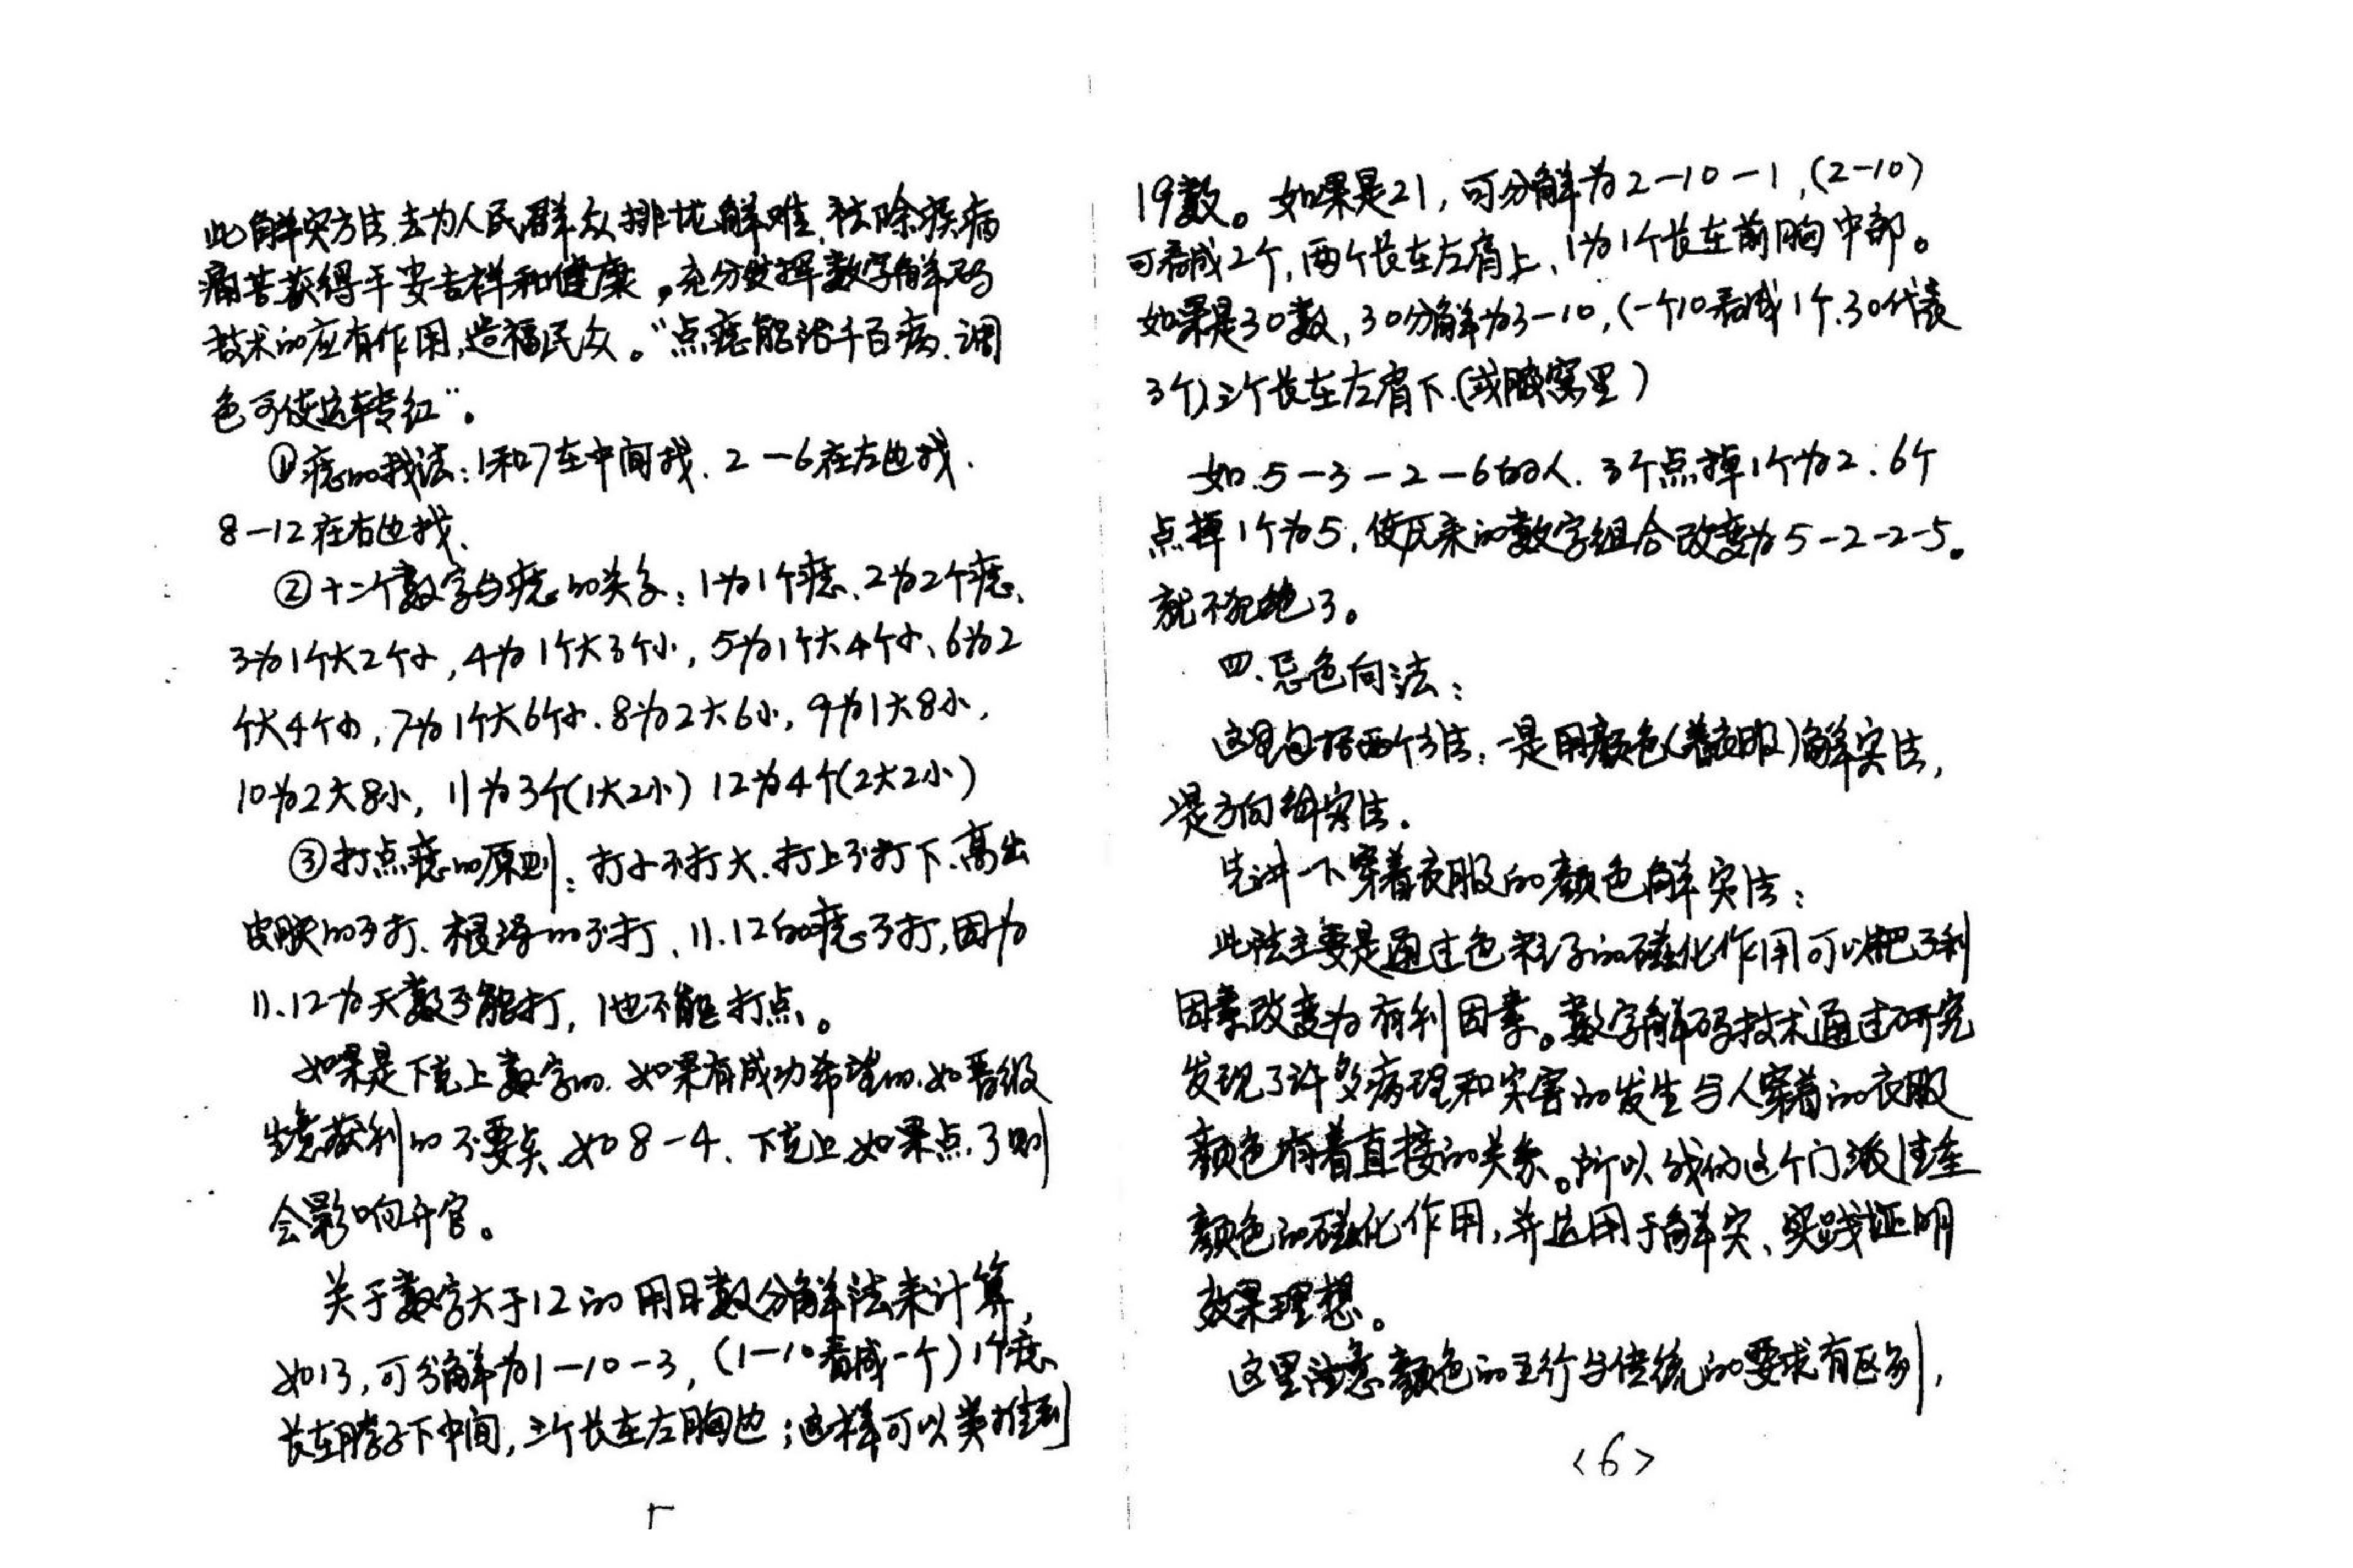 此解灾方法,去为人民群众排忧解难,祛除疾病
痛苦获得平安吉祥和健康,充分发挥数字解码
技术的应有作用,造福民众。“点痣能治千百病、调
色可使运转红”。
①痣的找法:1和7在中间找.2—6在左边找.
8—12在右边找、
②十二个数字与痣的关系:1为1个痣、2为2个痣、
3为1个大2个小,4为1个大3个小,5为1个大4个小、6为2
个大4个小,7为1个大6个小.8为2大6小,9为1大8小,
10为2大8小,11为3个(1大2小)12为4个(2大2小)
③打点痣的原则:打小不打大.打上不打下、高出
皮肤的不打、根深的不打、11.12的痣不打,因为
11.12为天数不能打,1也不能打点。
如果是下克上数字的.如果有成功希望的.如晋级
生意获利的不要点.如8—4、下克上.如果点了则
会影响升官。
关于数字大于12的用日数分解法来计算,
如13,可分解为1—10—3,(1—10看成一个)1个痣
长在脖子下中间,三个长在左胸边;这样可以类推到
5
19数。如果是21,可分解为2—10—1,(2—10)
可看成2个,两个长在左肩上、1为1个长在前胸中部。
如果是30数,30分解为3—10,(一个10看成1个.30代表
3个)三个长在左肩下.(或腋窝里)
如.5—3—2—6的人.3个点掉1个为2.6个
点掉1个为5,使原来的数字组合改变为5-2-2-5。
就不犯绝了。
四.忌色向法:
这里包括两个方法:一是用颜色(着衣服)解灾法,
二是方向解灾法.
先讲一下穿着衣服的颜色解灾法:
此法主要是通过色粒子的磁化作用可以把不利
因素改变为有利因素。数字解码技术通过研究
发现了许多病理和灾害的发生与人穿着的衣服
颜色有着直接的关系。所以我们这个门派注重
颜色的磁化作用,并运用于解灾、实践证明
效果理想。
这里注意颜色的五行与传统的要求有区别,
<6>